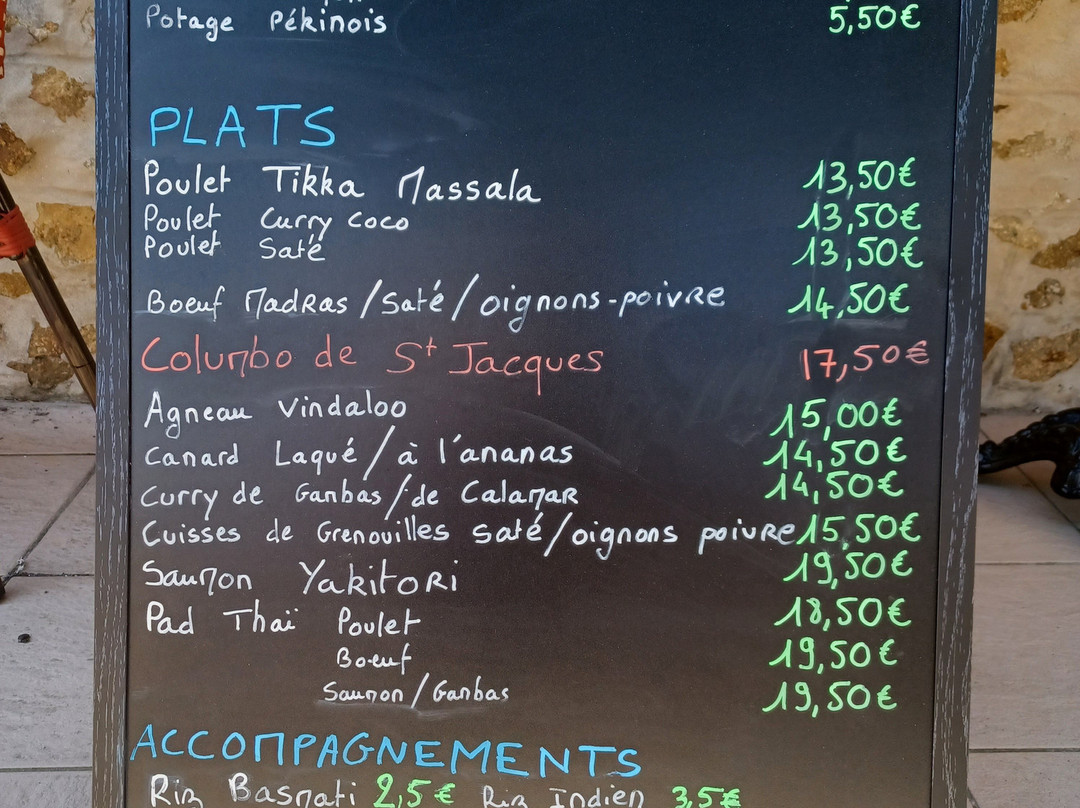 Potage Pékinois 5,50€
PLATS
Poulet Tikka Massala 13,50€
Poulet Curry coco 13,50€
Poulet Saté 13,50€
Boeuf Madras/Saté/oignons-poivre 14,50€
Colombo de St Jacques 17,50€
Agneau Vindaloo 15,00€
Canard Laqué/à l'ananas 14,50€
Curry de Gambas/de Calamar 14,50€
Cuisses de Grenouilles saté/oignons poivre 15,50€
Saumon Yakitori 19,50€
Pad Thaï Poulet 18,50€
Boeuf 19,50€
Saumon/Gambas 19,50€
ACCOMPAGNEMENTS
Riz Basmati 2,5€ Riz Indien 3,5€